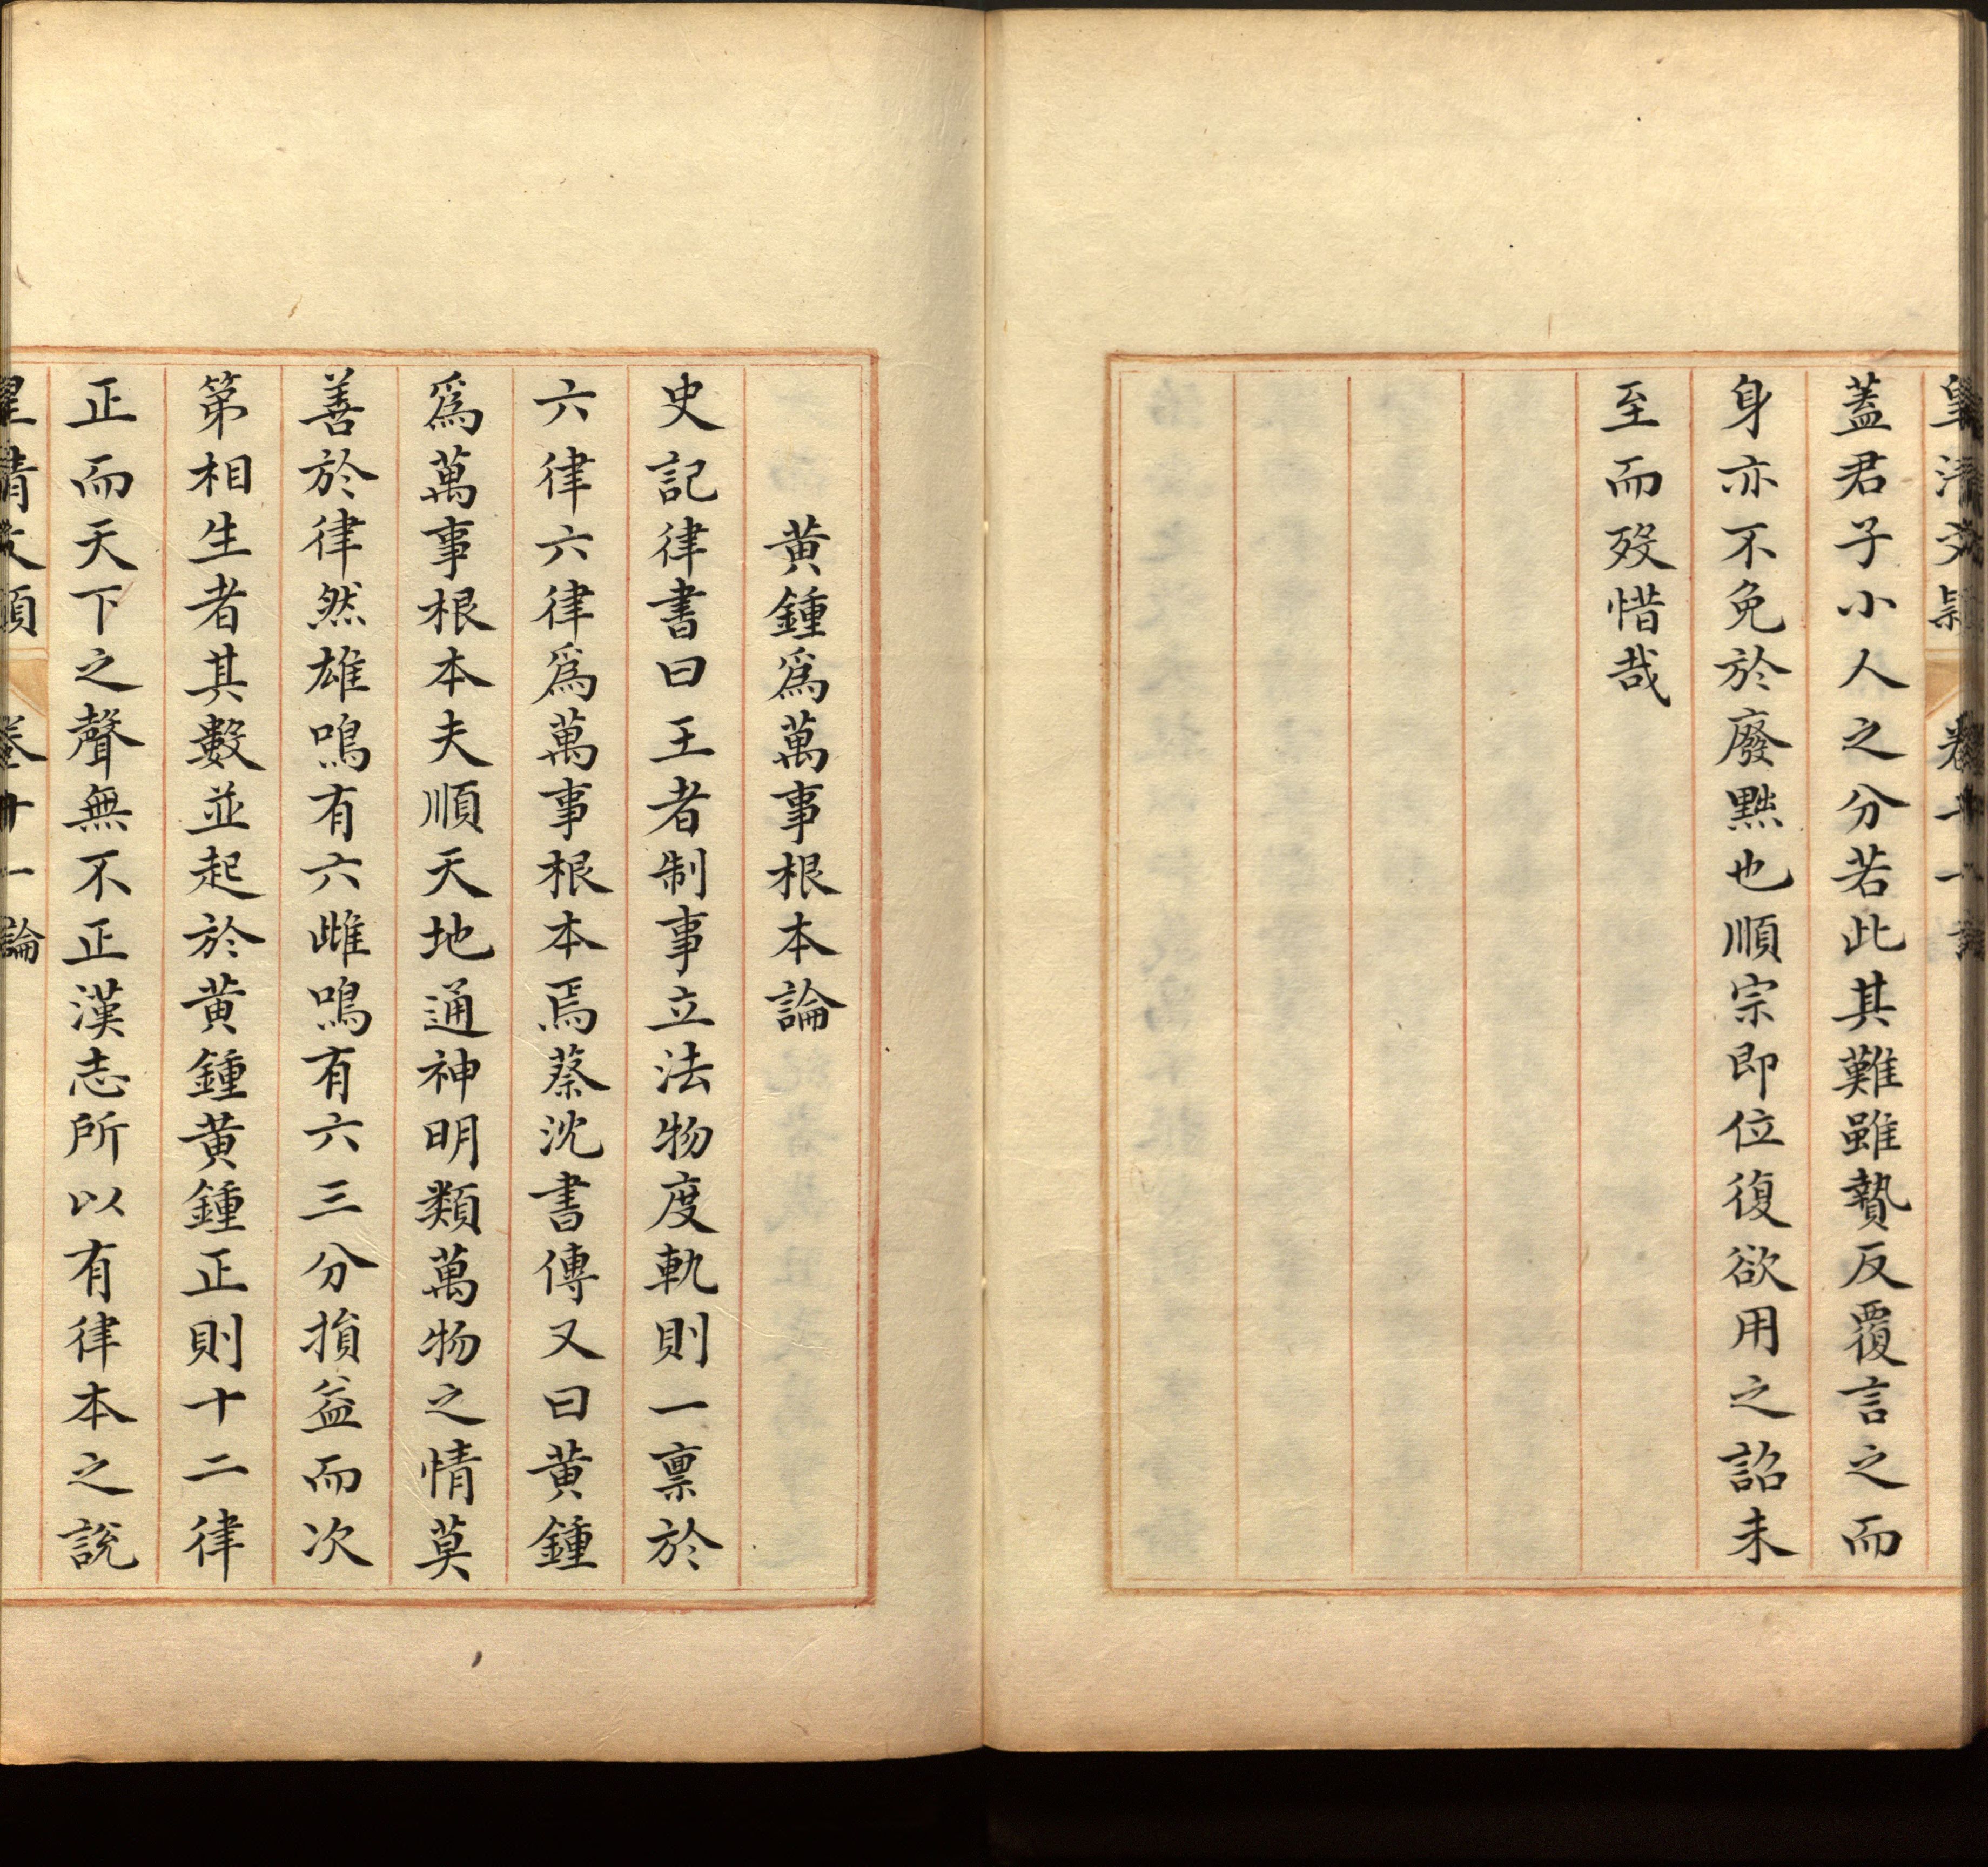 皇清文穎 卷十一 論
蓋君子小人之分若此其難雖贄反覆言之而
身亦不免於廢黜也順宗即位復欲用之詔未
至而歿惜哉
黄鍾爲萬事根本論
史記律書曰王者制事立法物度軌則一禀於
六律六律爲萬事根本焉蔡沈書傳又曰黄鍾
爲萬事根本夫順天地通神明類萬物之情莫
善於律然雄鳴有六雌鳴有六三分損益而次
第相生者其數並起於黄鍾黄鍾正則十二律
正而天下之聲無不正漢志所以有律本之說
皇清文穎 卷十一 論